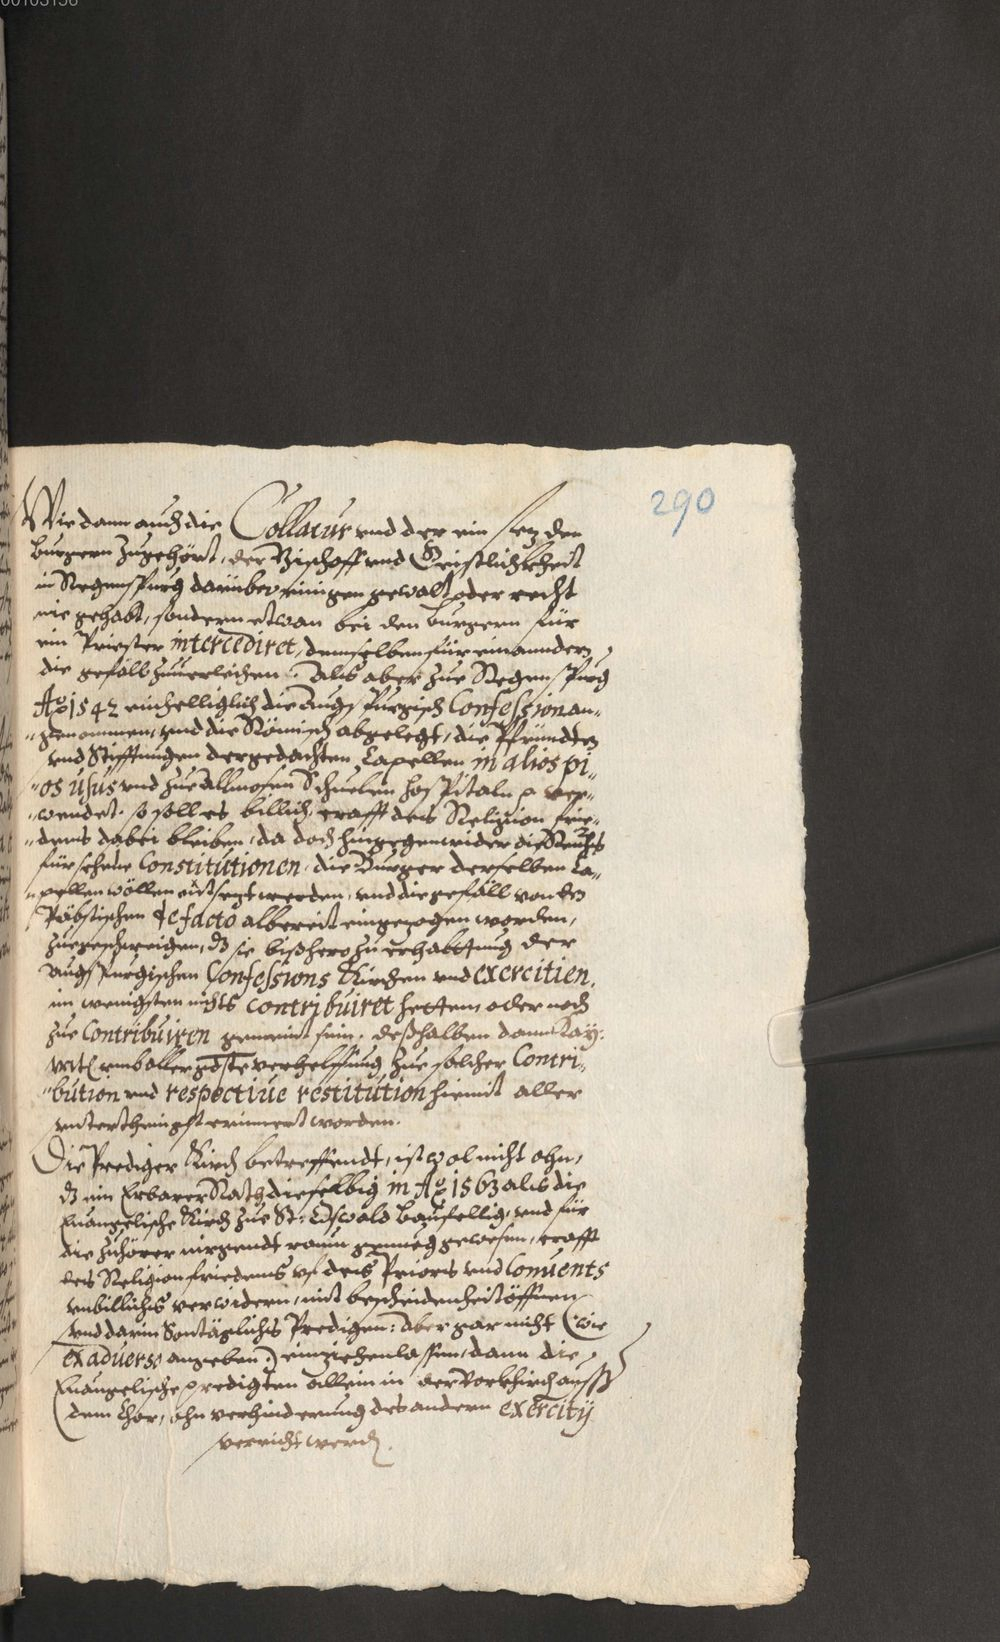 00103130
290
Wie dann auch die Collatur vnd der ein satz den
Burgern zugehört, der Bischoff vnd Geistlichkheit
in Regenspurg darüber einigen gewalt oder recht
nie gehabt, sondern etwan bei den burgern für
ein Priester intercediret, demselben für einanndern
die gefäll zuuerleichen. Als aber zue Regenspurg
Aõ 1542 einhelliglich die Augspurgisch Confession an„
„genommen, vnd die Römisch abgelegt, die Pfründten
vnd Stifftungen der gedachten Capellen in alios pi„
„os usus vnd zue Allmosen Schuelen hospitaln p ver„
„wendet. so soll es billich crafft des Religion frie„
„dens dabei bleiben, da doch hingegen wider die Reichs
für sehene Constitutionen die Burger derselben Ca„
„pellen wöllen entsezt werden, vnd die gefäll von den
Päbstischen de facto albereit eingezogen worden,
zuegeschweigen, dz sie bißhero zu erhalttung der
Augspurgischen Confessions Kirchen vnd exercitien,
im wenigsten nichts contribuiret hetten, oder noch
zue Contribuiren gemeint sein, deßhalben dann Kay:
Mt: vmb allergdste verhelffung zue solcher Contri„
„bution vnd respectiue restitution hiemit aller
vnterthenigst erinnert worden.
Die Prediger Kirch betreffendt, ist wol nicht ohn,
dz ein Erbarer Rath dieselbig in Aõ 1563 als die
Euangelische Kirch zue St: Oswald baufellig, vnd für
die zuhörer nirgendt raum genueg gewesen, crafft
des Religion friedens vf des Priors vnd Conuents
vnbillichs verwidern, mit bescheidenheit öffnen
vnd darin Sontäglichs Predigen: aber gar nicht (wie
ex aduerso angeben:) einziehen lassen, dann die
Euangelische predigten allein in der Vorkirch ausser
dem Chor, ohn verhinderung des andern exercitij
verricht werden.